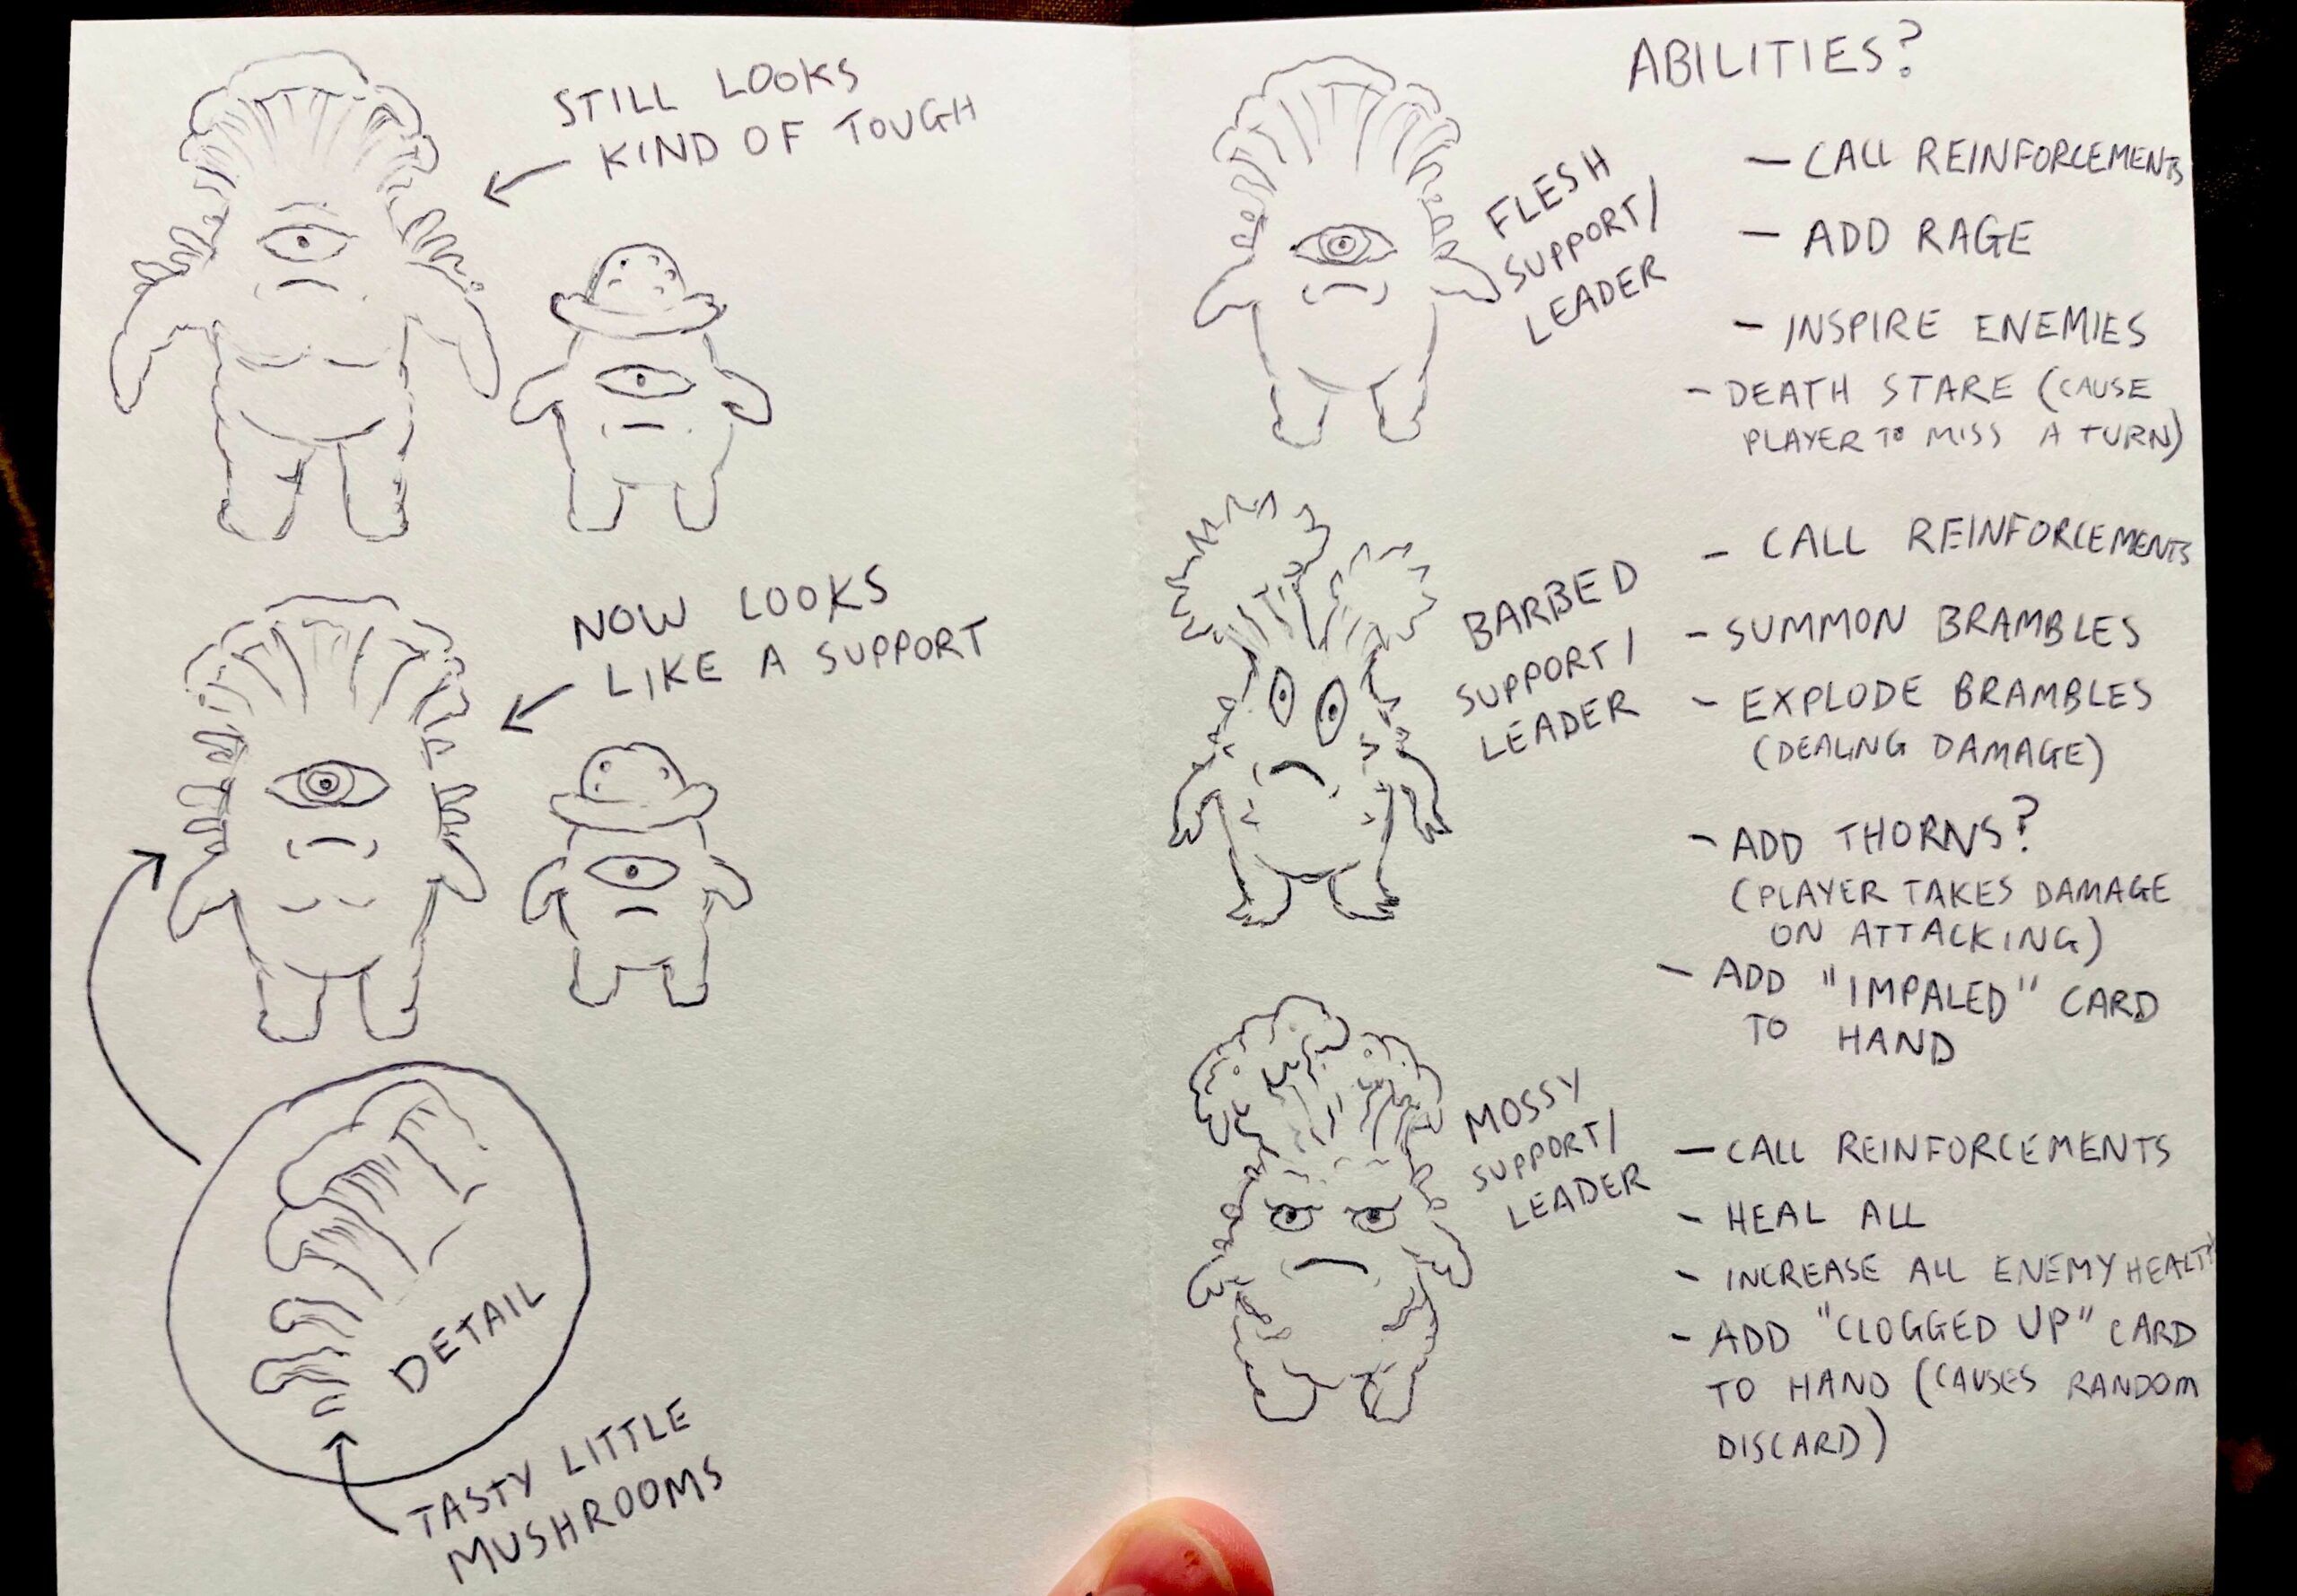 STILL LOOKS
KIND OF TOUGH
NOW LOOKS
LIKE A SUPPORT
DETAIL
TASTY LITTLE
MUSHROOMS
ABILITIES?
FLESH
SUPPORT/
LEADER
- CALL REINFORCEMENTS
- ADD RAGE
- INSPIRE ENEMIES
- DEATH STARE (CAUSE
PLAYER TO MISS A TURN)
BARBED
SUPPORT/
LEADER
- CALL REINFORCEMENTS
- SUMMON BRAMBLES
- EXPLODE BRAMBLES
(DEALING DAMAGE)
- ADD THORNS?
(PLAYER TAKES DAMAGE
ON ATTACKING)
- ADD "IMPALED" CARD
TO HAND
MOSSY
SUPPORT/
LEADER
- CALL REINFORCEMENTS
- HEAL ALL
- INCREASE ALL ENEMY HEALTH
- ADD "CLOGGED UP" CARD
TO HAND (CAUSES RANDOM
DISCARD)